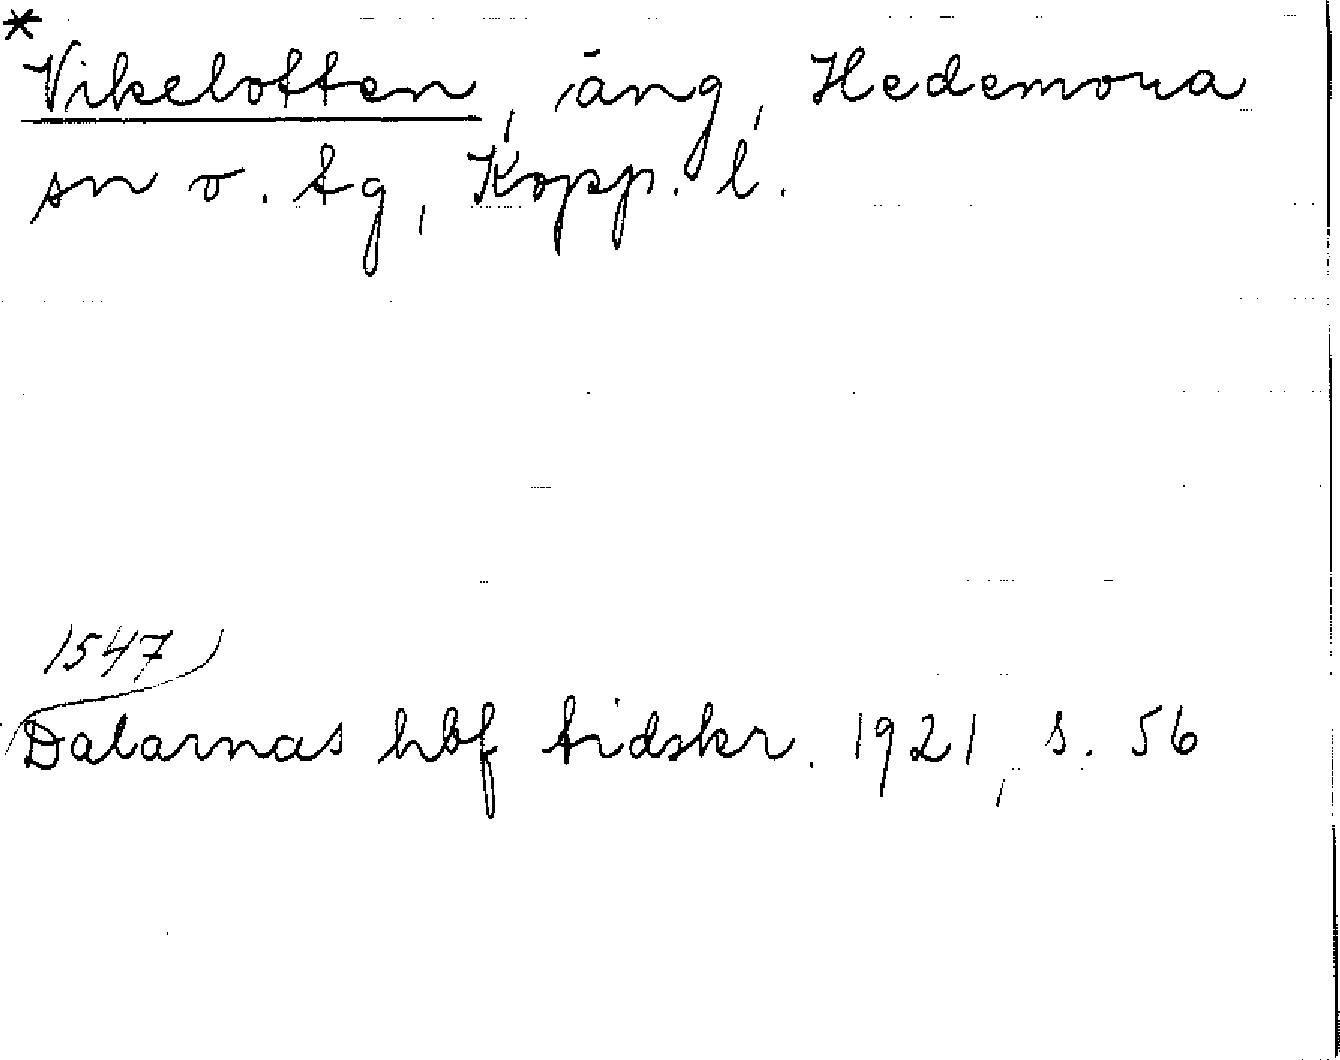 *
Vikelotten, äng, Hedemora
sn o. tg, Kopp. l.
1547
Dalarnas hbf tidskr. 1921, s. 56